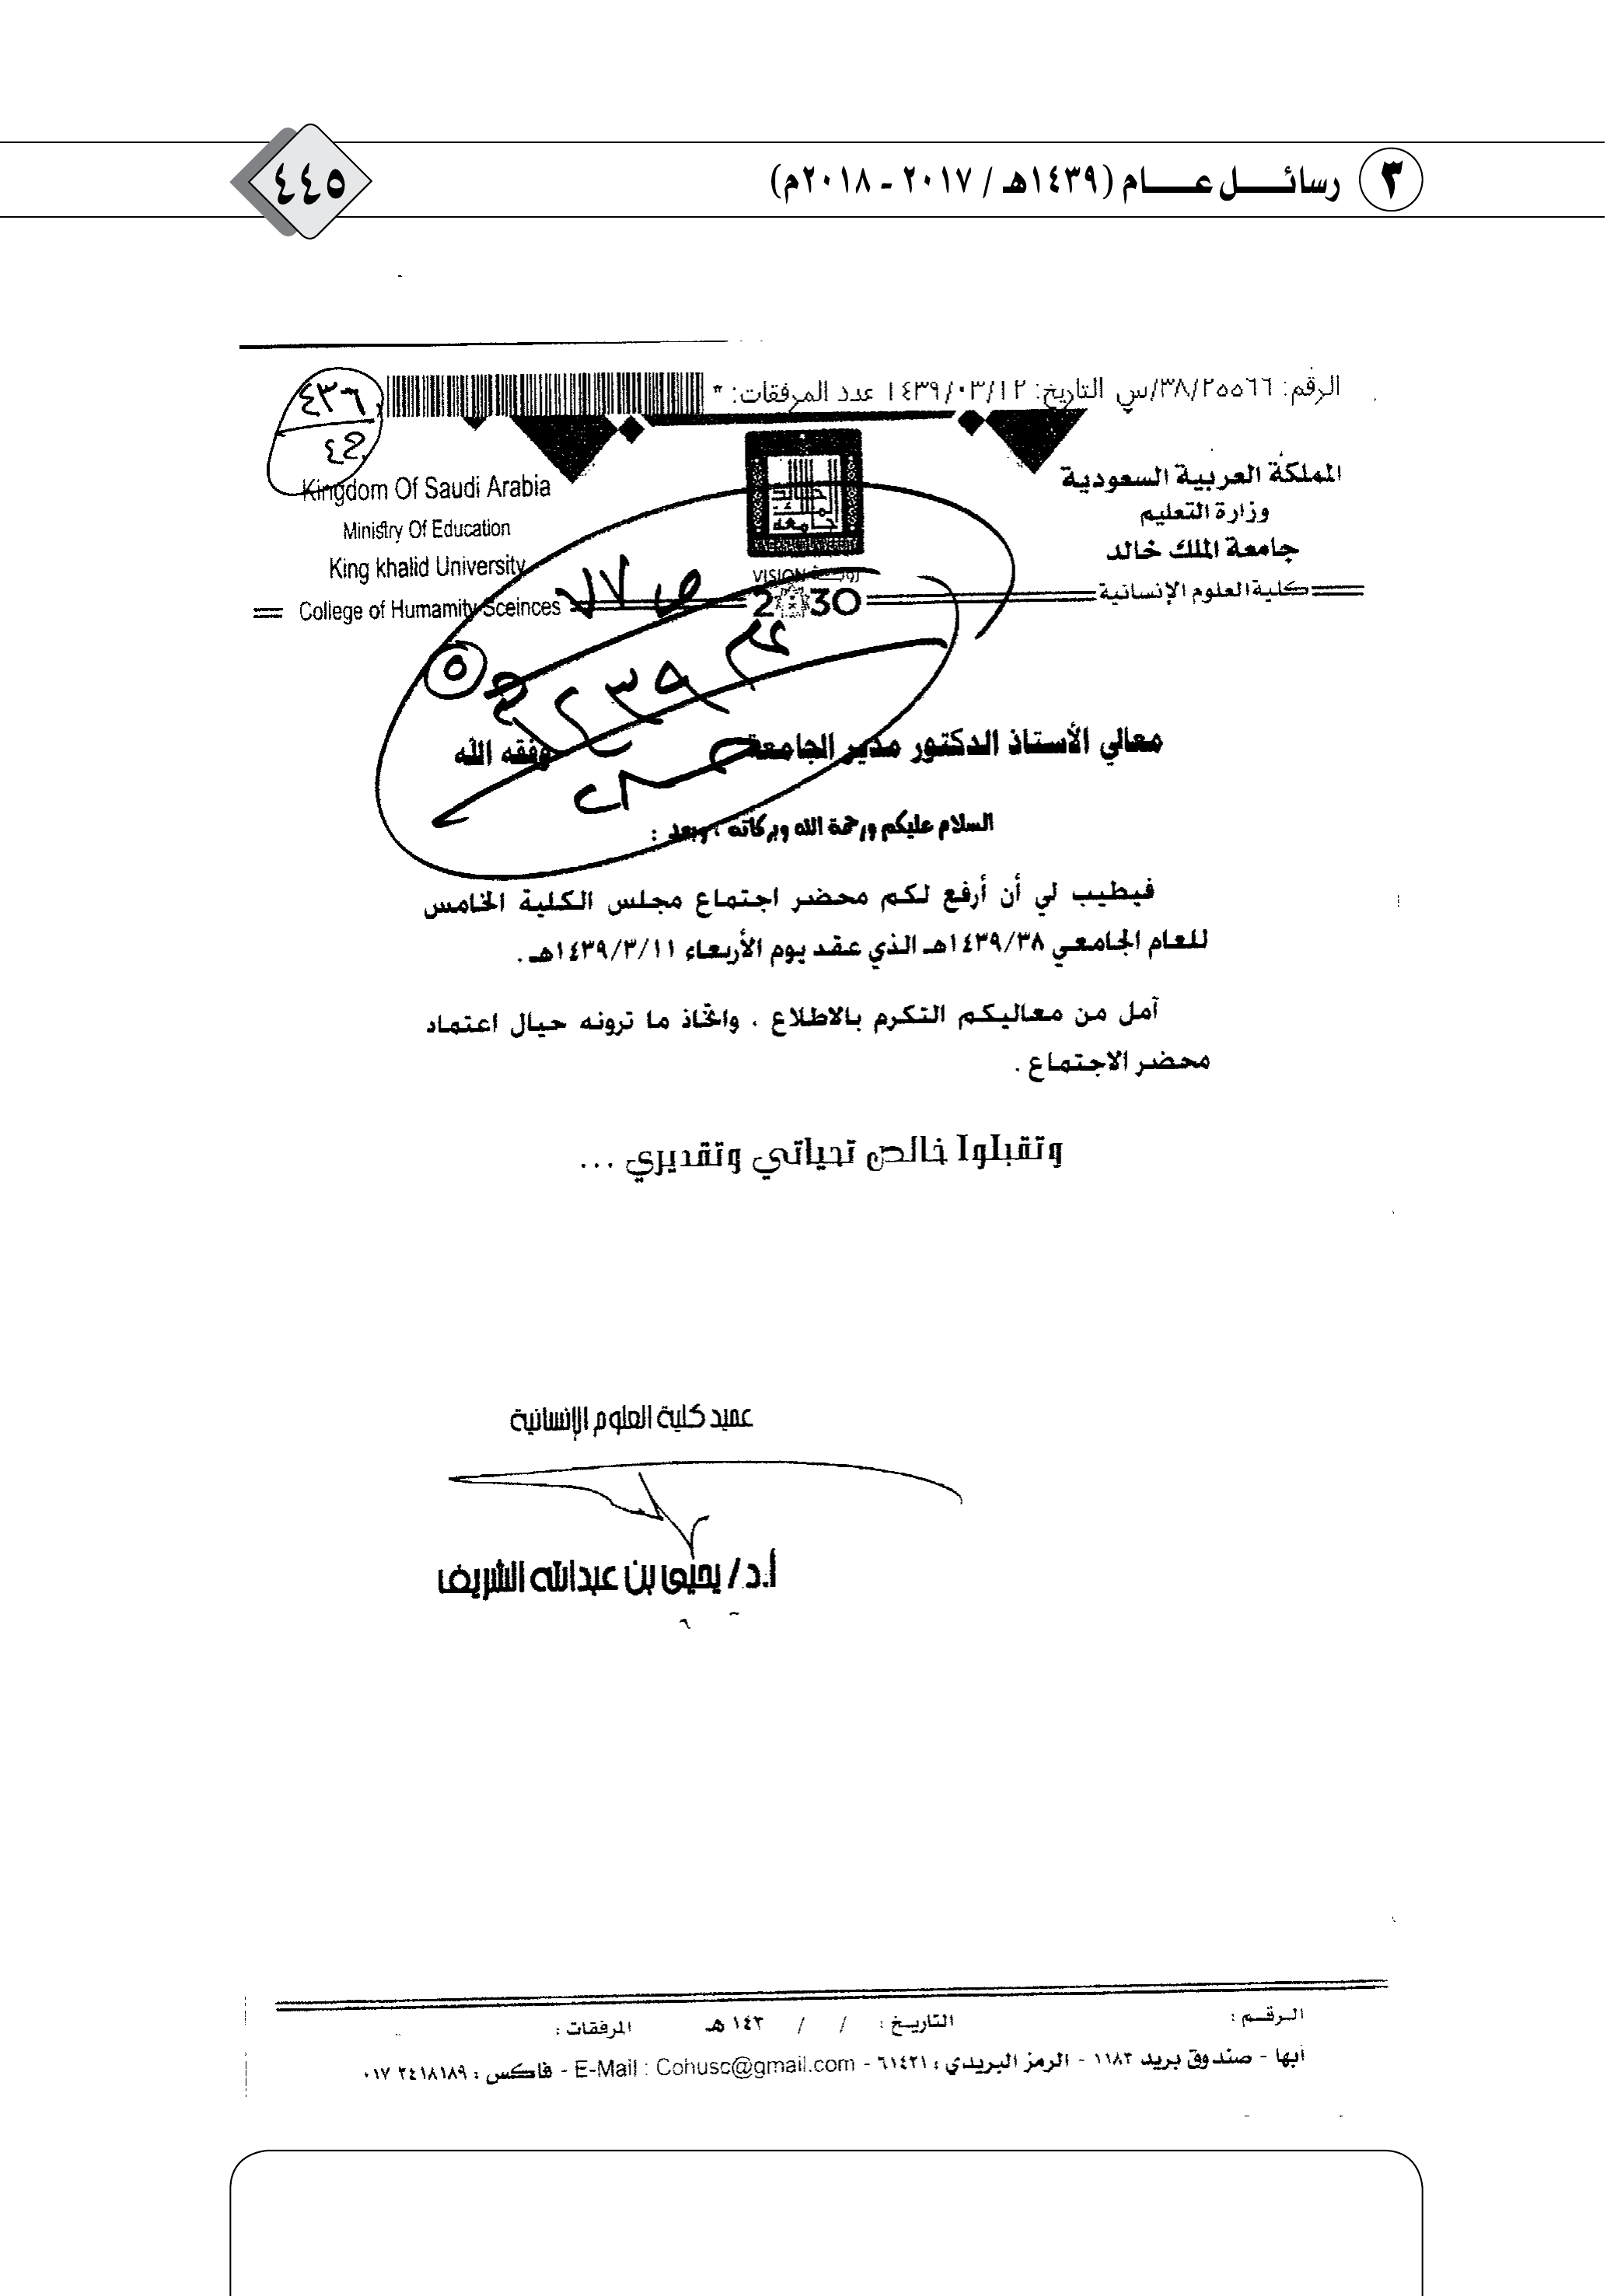 ٣ رسائل عام (١٤٣٩هـ / ٢٠١٧ - ٢٠١٨م) ٤٤٥
الرقم: ٣٨/٢٥٥٦٦/س التاريخ: ١٤٣٩/٠٣/١٢ عدد المرفقات: *
٤٣٦
المملكة العربية السعودية
وزارة التعليم
جامعة الملك خالد
كلية العلوم الإنسانية
جامعة الملك خالد
VISION رؤيـــة
2030
Kingdom Of Saudi Arabia
Ministry Of Education
King khalid University
College of Humamity Sceinces
ص ٧٧
٥
معالي الأستاذ الدكتور مدير الجامعة وفقه الله
السلام عليكم ورحمة الله وبركاته ، وبعد :
فيطيب لي أن أرفع لكم محضر اجتماع مجلس الكلية الخامس
للعام الجامعي ١٤٣٩/٣٨هـ الذي عقد يوم الأربعاء ١٤٣٩/٣/١١هـ .
آمل من معاليكم التكرم بالاطلاع ، واتخاذ ما ترونه حيال اعتماد
محضر الاجتماع .
وتقبلوا خالص تحياتي وتقديري ...
عميد كلية العلوم الإنسانية
أ.د/ يحيى بن عبدالله الشريف
الـرقـم : التاريـخ : / / ١٤٣ هـ المرفقات :
أبها - صندوق بريد ١١٨٣ - الرمز البريدي : ٦١٤٢١ - E-Mail : Cohusc@gmail.com - فاكس : ٠١٧ ٢٤١٨١٨٩